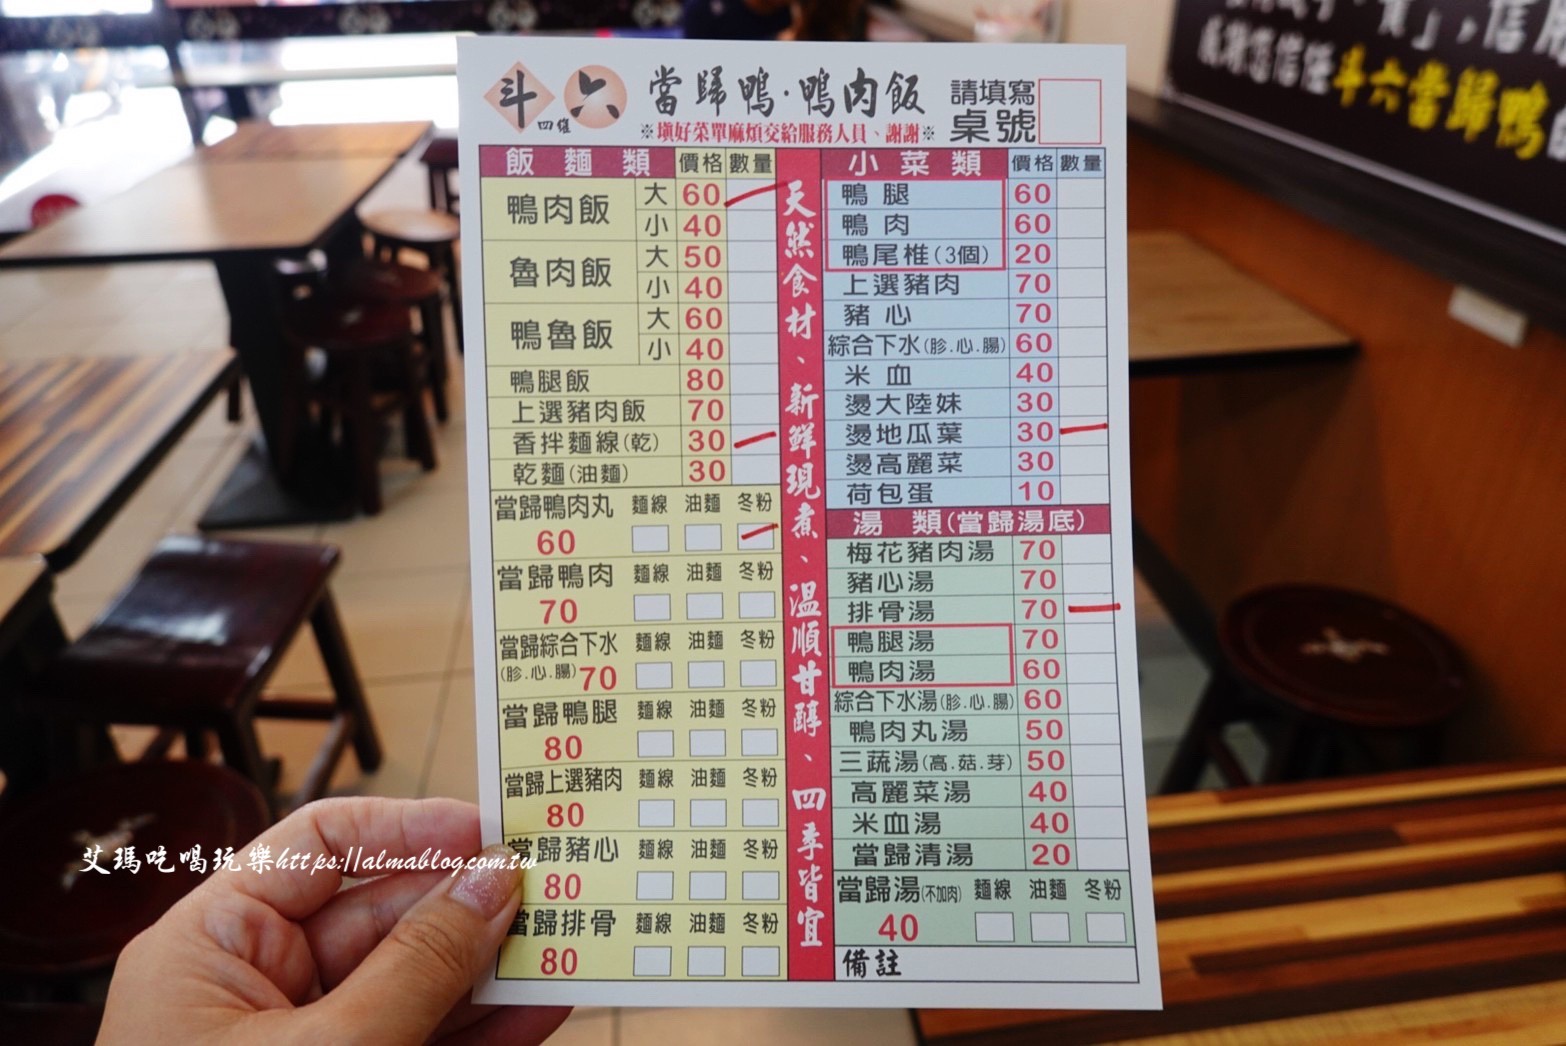 斗六 當歸鴨·鴨肉飯 請填寫
四維 桌號
※填好菜單麻煩交給服務人員、謝謝※
飯麵類 價格 數量
鴨肉飯 大 60
小 40
魯肉飯 大 50
小 40
鴨魯飯 大 60
小 40
鴨腿飯 80
上選豬肉飯 70
香拌麵線(乾) 30
乾麵(油麵) 30
當歸鴨肉丸 麵線 油麵 冬粉
60
當歸鴨肉 麵線 油麵 冬粉
70
當歸綜合下水 麵線 油麵 冬粉
(胗.心.腸) 70
當歸鴨腿 麵線 油麵 冬粉
80
當歸上選豬肉 麵線 油麵 冬粉
80
當歸豬心 麵線 油麵 冬粉
80
當歸排骨 麵線 油麵 冬粉
80
天然食材、新鮮現煮、溫順甘醇、四季皆宜
小菜類 價格 數量
鴨腿 60
鴨肉 60
鴨尾椎(3個) 20
上選豬肉 70
豬心 70
綜合下水(胗.心.腸) 60
米血 40
燙大陸妹 30
燙地瓜葉 30
燙高麗菜 30
荷包蛋 10
湯類(當歸湯底)
梅花豬肉湯 70
豬心湯 70
排骨湯 70
鴨腿湯 70
鴨肉湯 60
綜合下水湯(胗.心.腸) 60
鴨肉丸湯 50
三蔬湯(高.菇.芽) 50
高麗菜湯 40
米血湯 40
當歸清湯 20
當歸湯(不加肉) 麵線 油麵 冬粉
40
備註
斗六當歸鴨
艾瑪吃喝玩樂https://almablog.com.tw